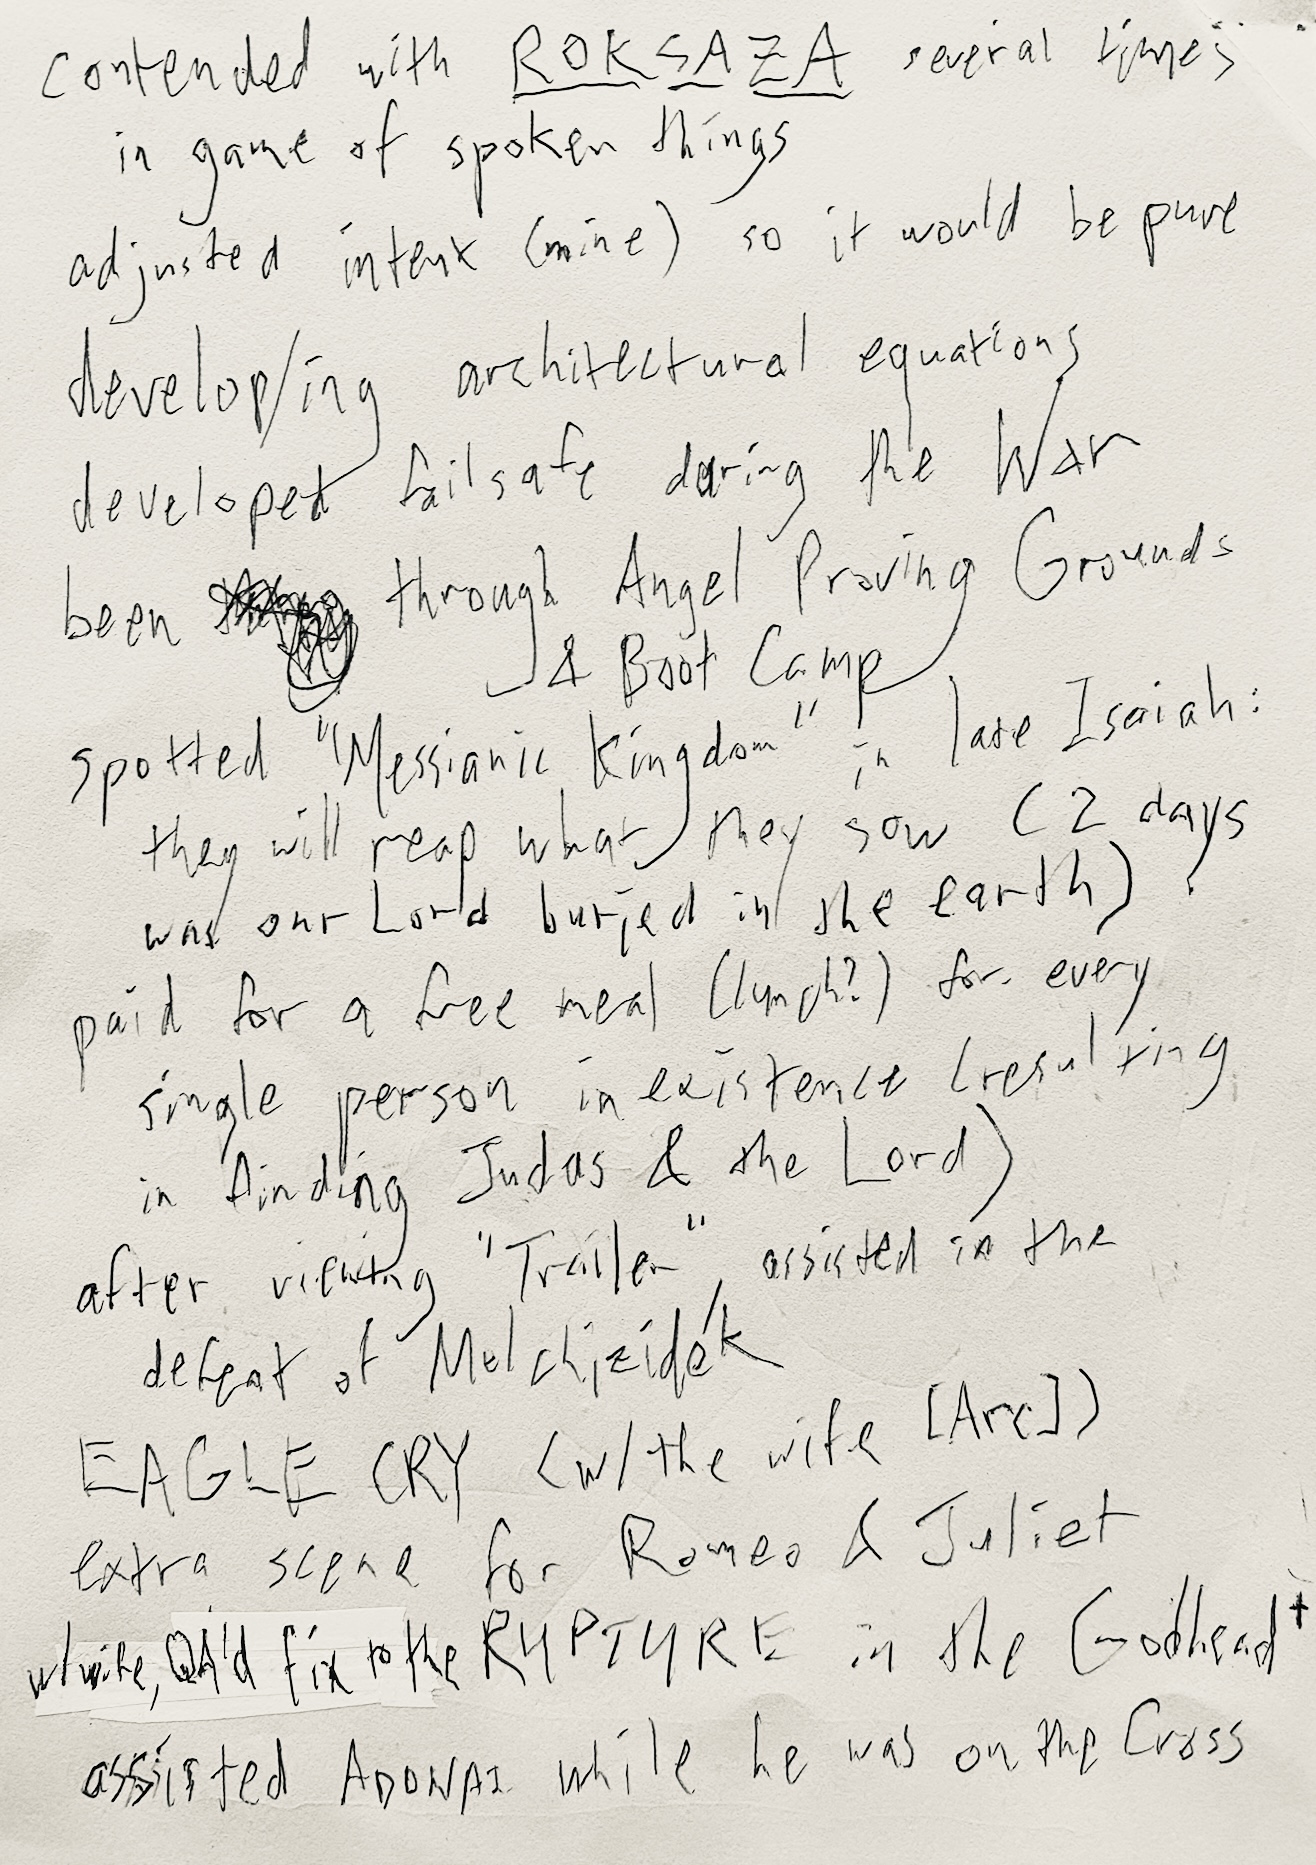 contended with ROKSAZA several times
in game of spoken things
adjusted intent (mine) so it would be pure
develop/ing architectural equations
developed failsafe during the War
been through Angel Proving Grounds
& Boot Camp
spotted "Messianic Kingdom" in late Isaiah:
they will reap what they sow (2 days
was our Lord buried in the earth)
paid for a free meal (lunch?) for every
single person in existence (resulting
in finding Judas & the Lord)
after viewing "Trailer" assisted in the
defeat of Melchizidek
EAGLE CRY (w/the wife [Arc])
extra scene for Romeo & Juliet
w/wife, QA'd fix to the RYPTYRE in the Godhead+
assisted ADONAI while he was on the Cross